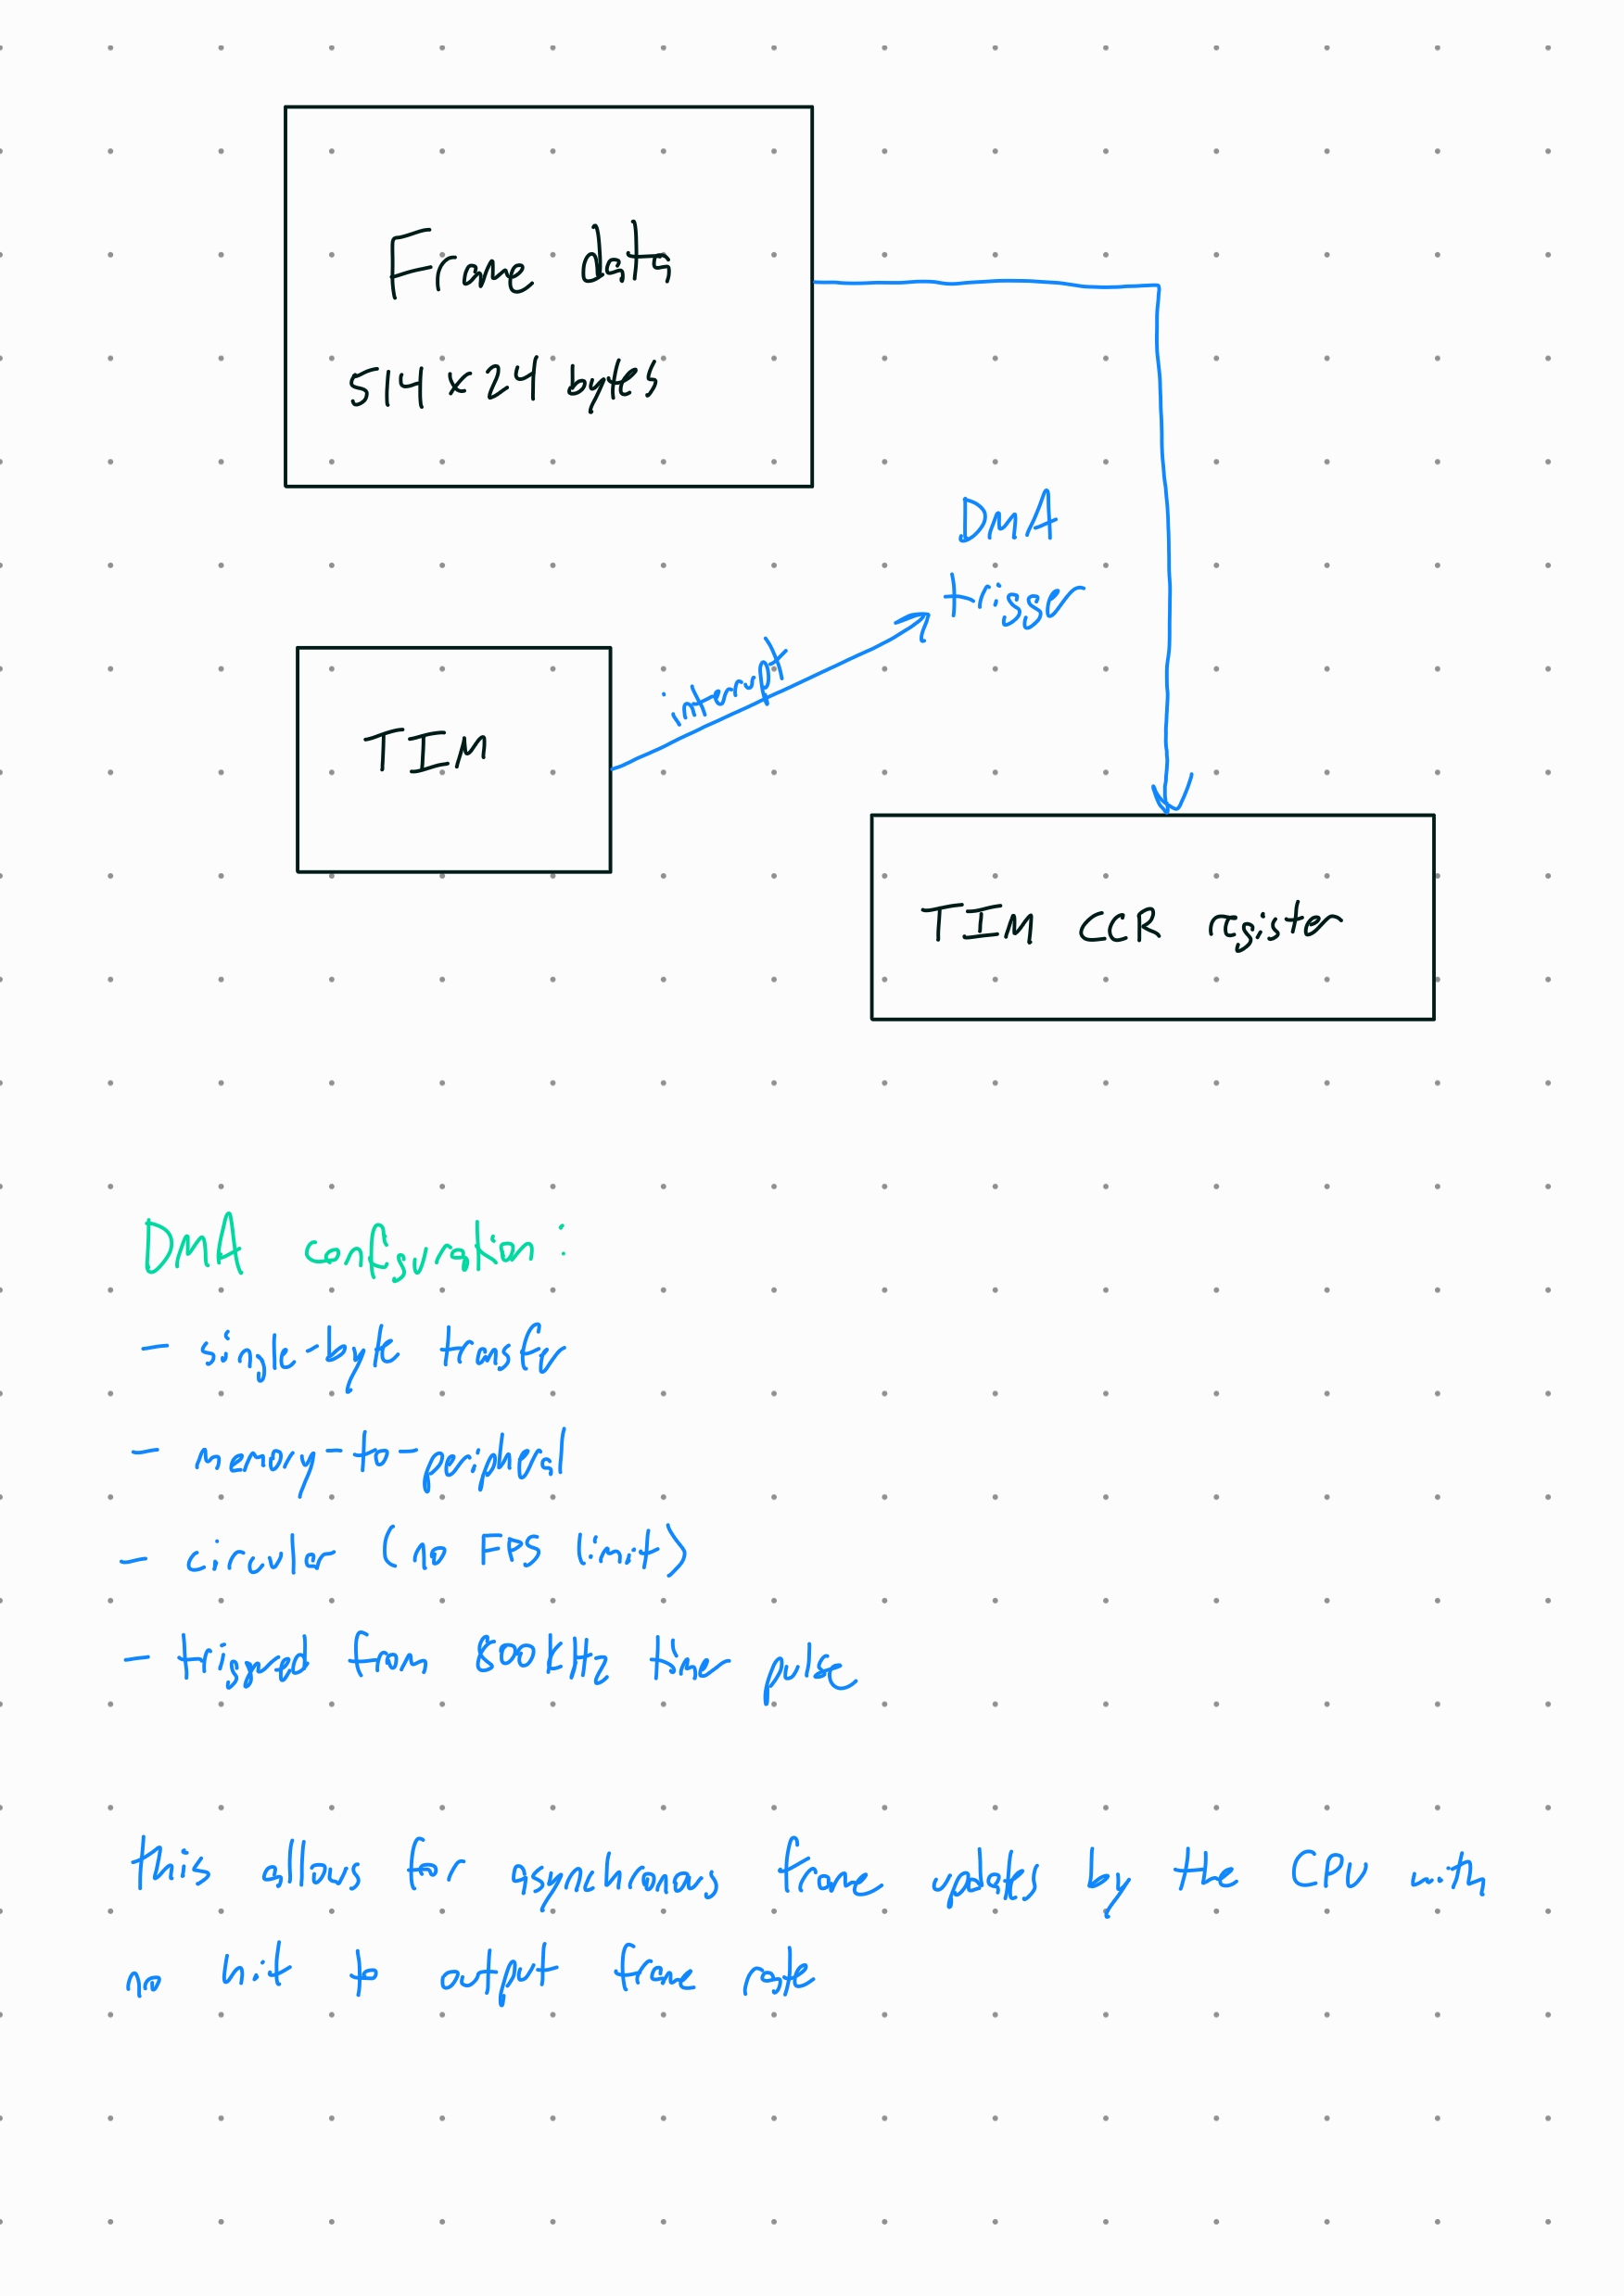 Frame data
514 x 24 bytes
DMA
trigger
interrupt
TIM
TIM CCR register
DMA configuration:
- single-byte transfer
- memory-to-peripheral
- circular (no FPS limit)
- triggered from 800kHz timer pulse
this allows for asynchronous frame updates by the CPU with
no hit to output frame rate